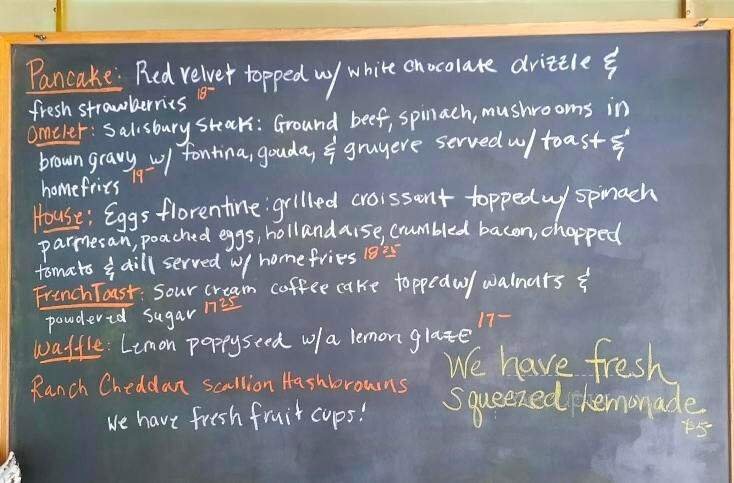 Pancake: Red velvet topped w/ white chocolate drizzle &
fresh strawberries 18-
Omelet: Salisbury Steak: Ground beef, spinach, mushrooms in
brown gravy w/ fontina, gouda, & gruyere served w/ toast &
homefries 19-
House: Eggs florentine: grilled croissant topped w/ spinach
parmesan, poached eggs, hollandaise, crumbled bacon, chopped
tomato & dill served w/ homefries 18 25
French Toast: Sour cream coffee cake topped w/ walnuts &
powdered sugar 17 25
Waffle: Lemon poppyseed w/a lemon glaze 17-
Ranch Cheddar Scallion Hashbrowns
We have fresh fruit cups!
We have fresh
squeezed Lemonade
$5-